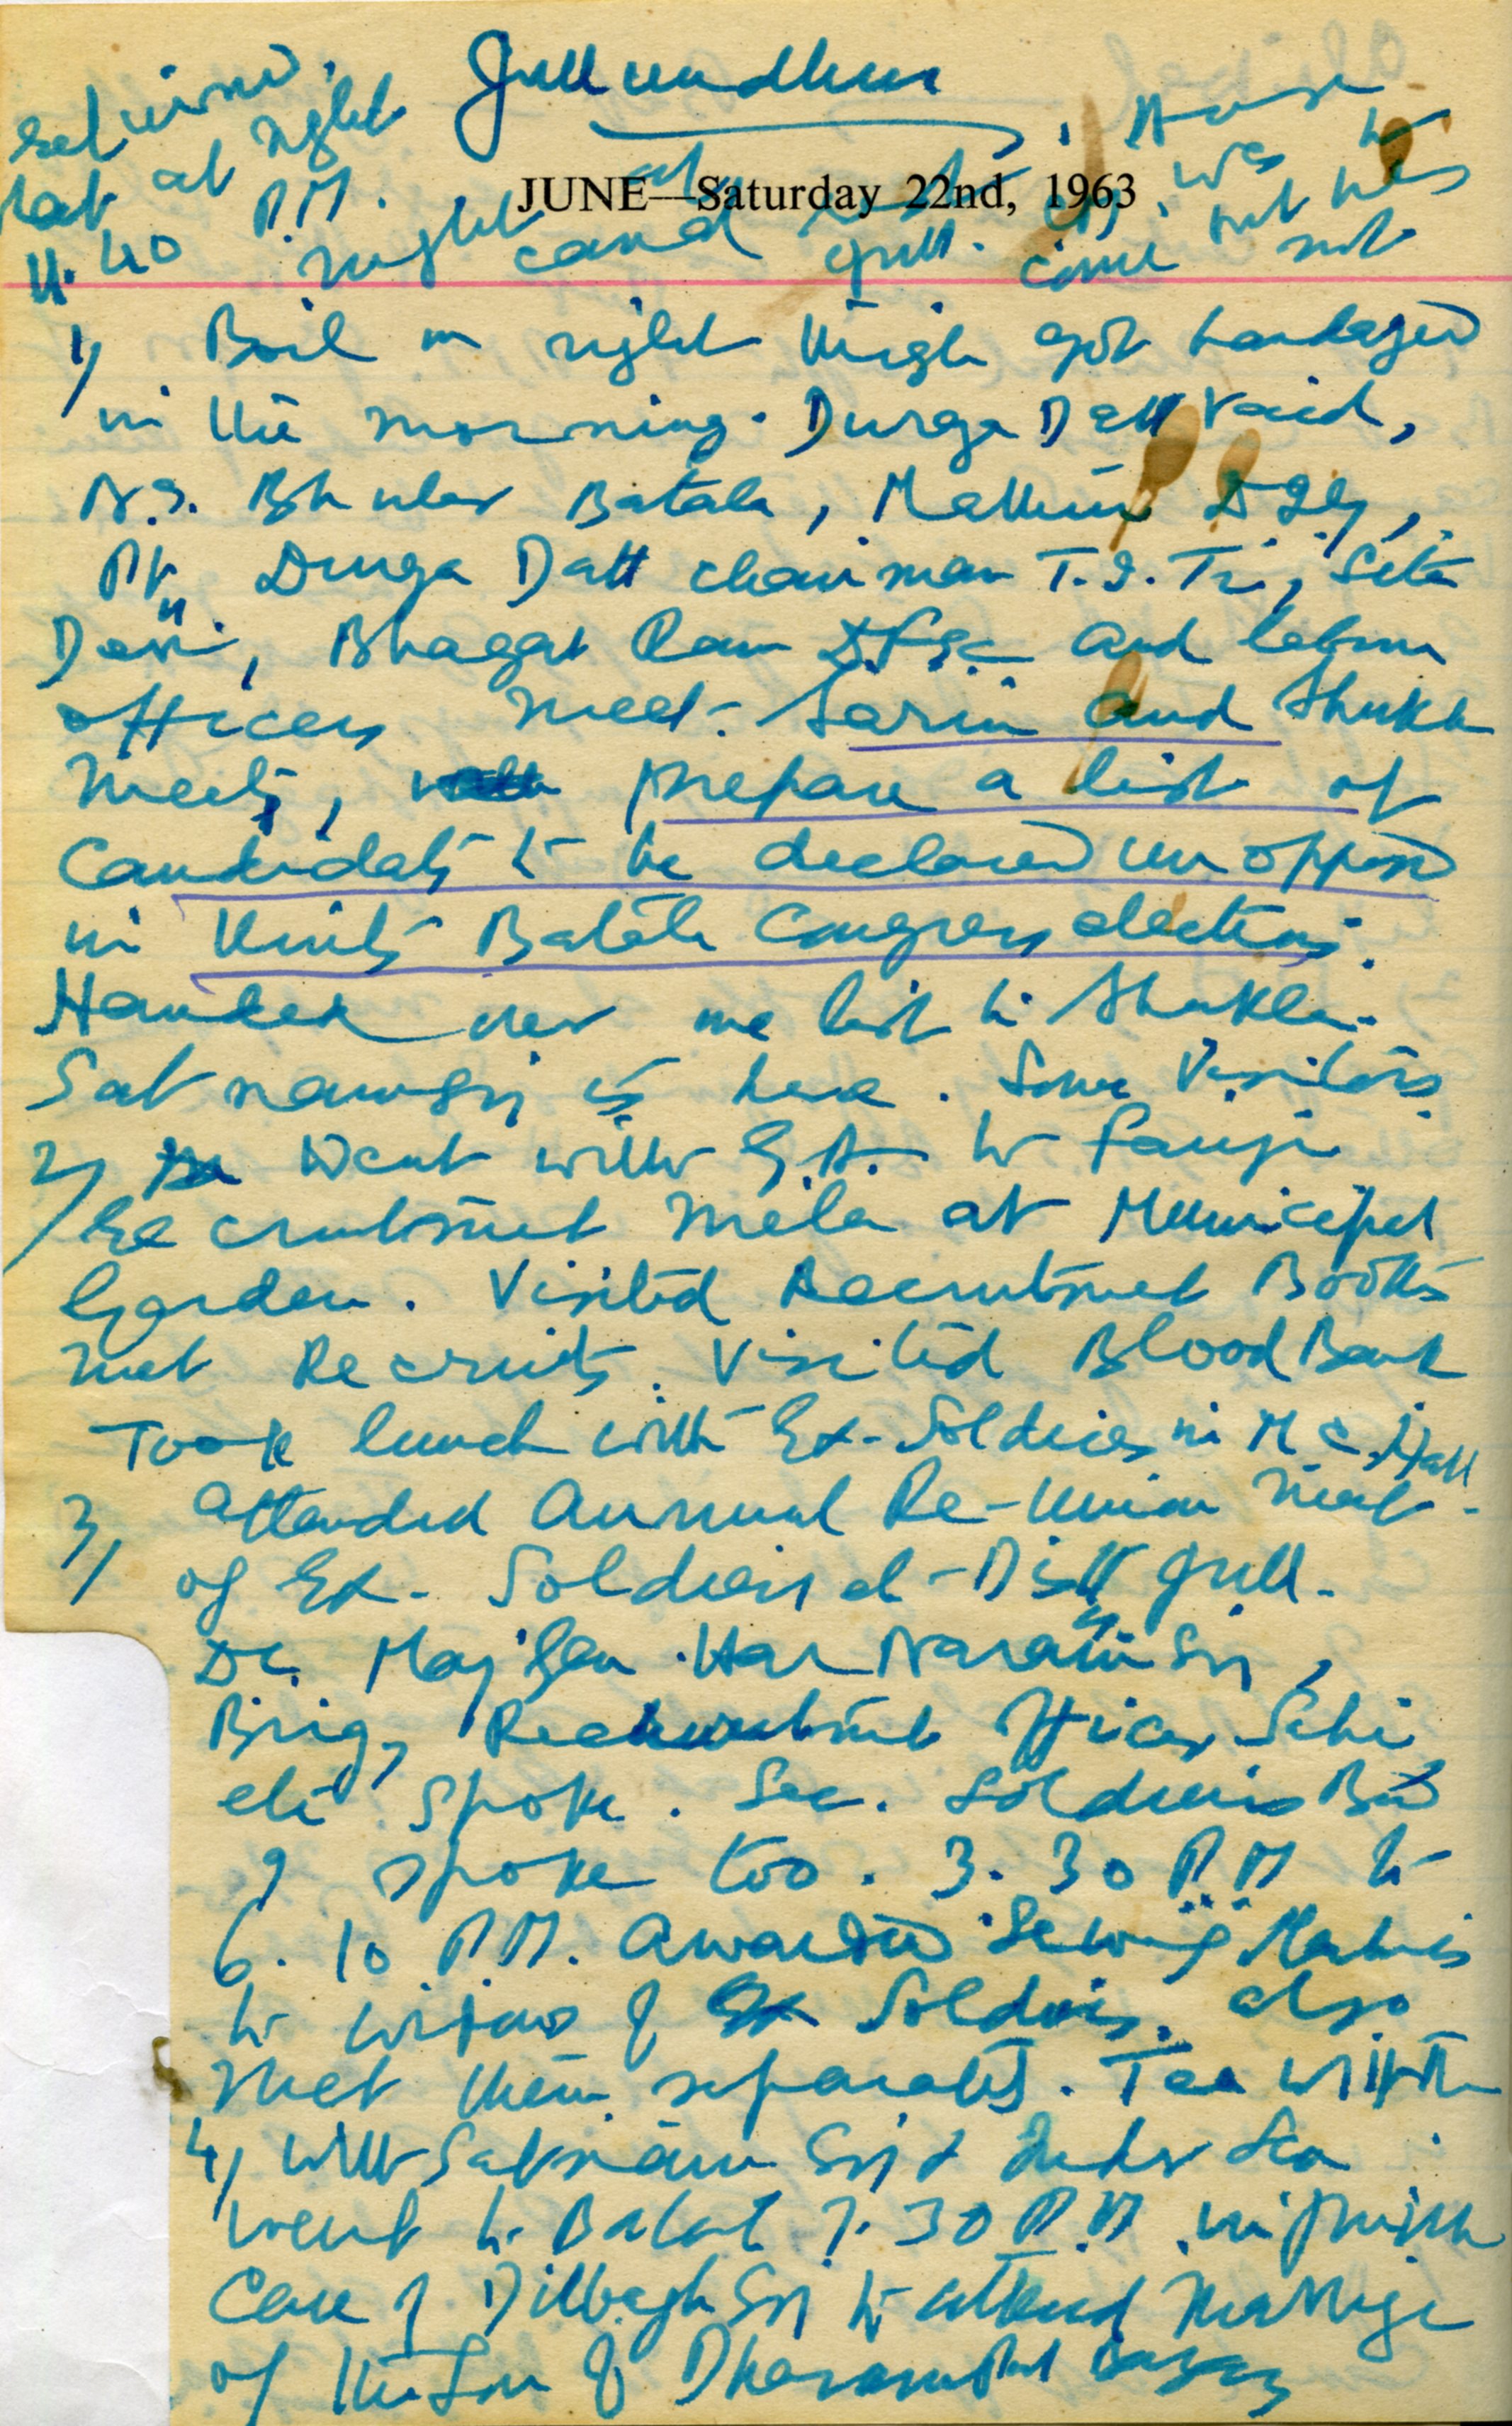 Jullundhur
returned
late at night
11.40 P.M.
JUNE—Saturday 22nd, 1963
night
come not
1) Boil on right thigh got bandaged
in the morning. Durga Datt Vaid,
Batala,
Pt. Durga Datt chairman T.I. Tr, Sita
Devi, Bhagat Ram and labour
officers meet. Sarin and Shukla
meets, prepare a list of
Candidates to be declared unopposed
in Units Batala Congress elections.
Handed over one list to Shukla.
Satnam Singh is here. Some Visitors
2) Went with G.A. to Fauji
Recruitment Mela at Municipal
Garden. Visited Recruitment Booths
met Recruits. Visited Blood Bank
Took lunch with Ex-Soldiers in M C. Hall
3) attended annual Re-Union meet
of Ex-Soldiers of Distt Jull.
DC. Maj Gen Har Narain Singh,
Brig, Recruitment Officer
etc spoke. Sec. Soldiers Bd
I spoke too. 3.30 P.M to
6.10 P.M. awarded Sewing Machines
to widows of Ex Soldiers. also
met them separately. Tea with
4) With Satnam Singh &
went to 7.30 P.M. in
Car of Dilbagh Singh to attend marriage
of the Son of Dharampal